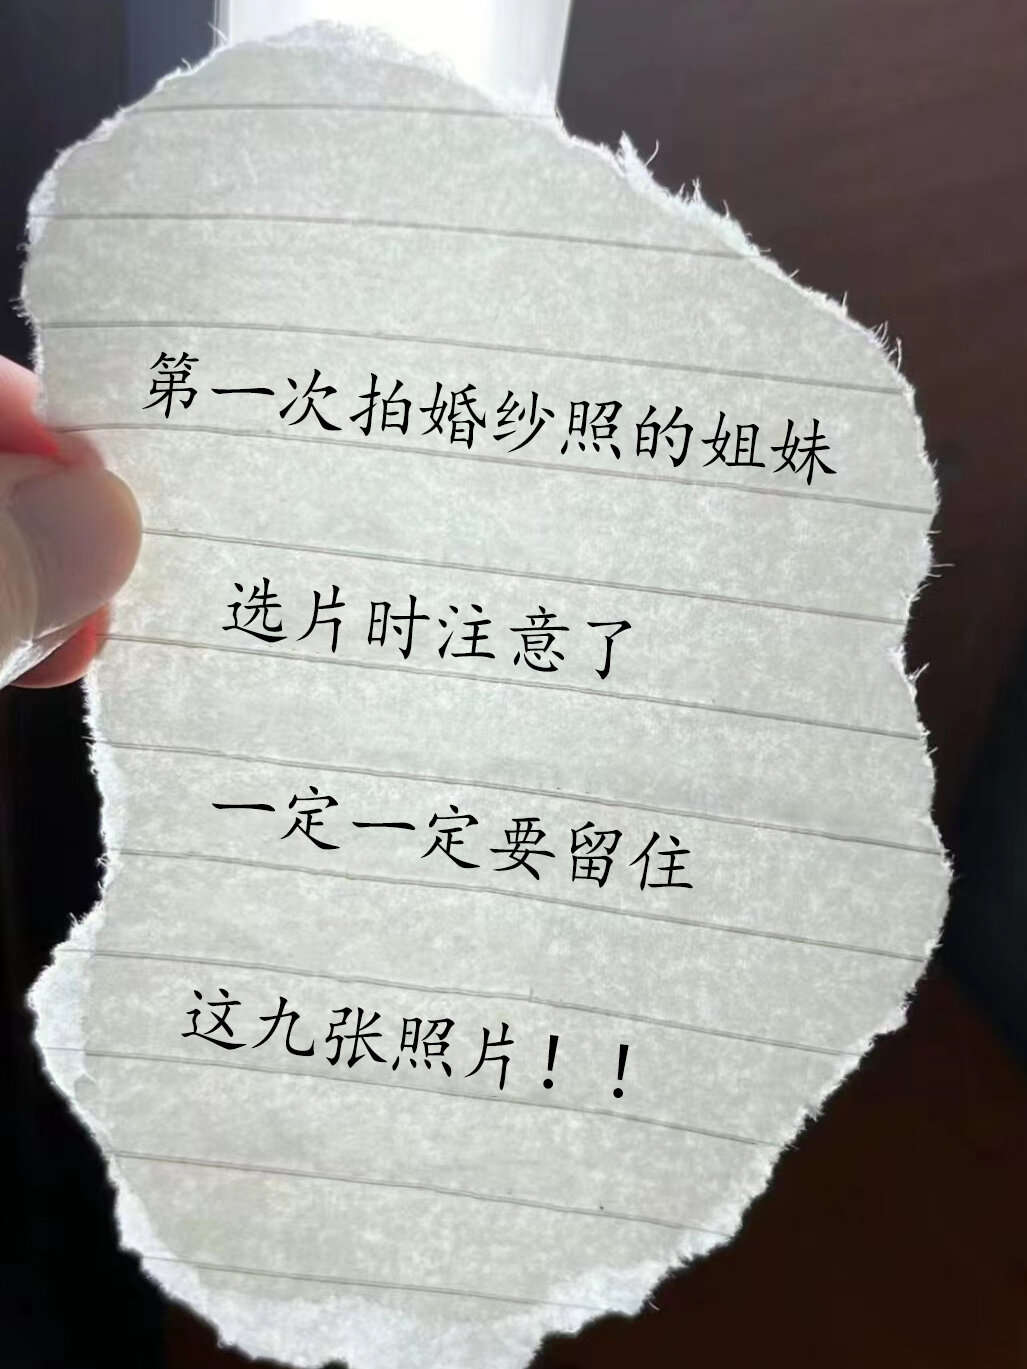 第一次拍婚纱照的姐妹
选片时注意了
一定一定要留住
这九张照片！！